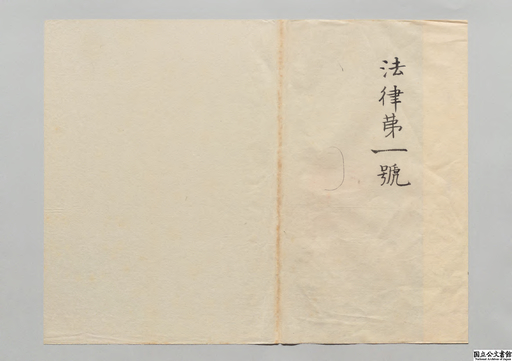 法律第一號
国立公文書館
National Archives of Japan